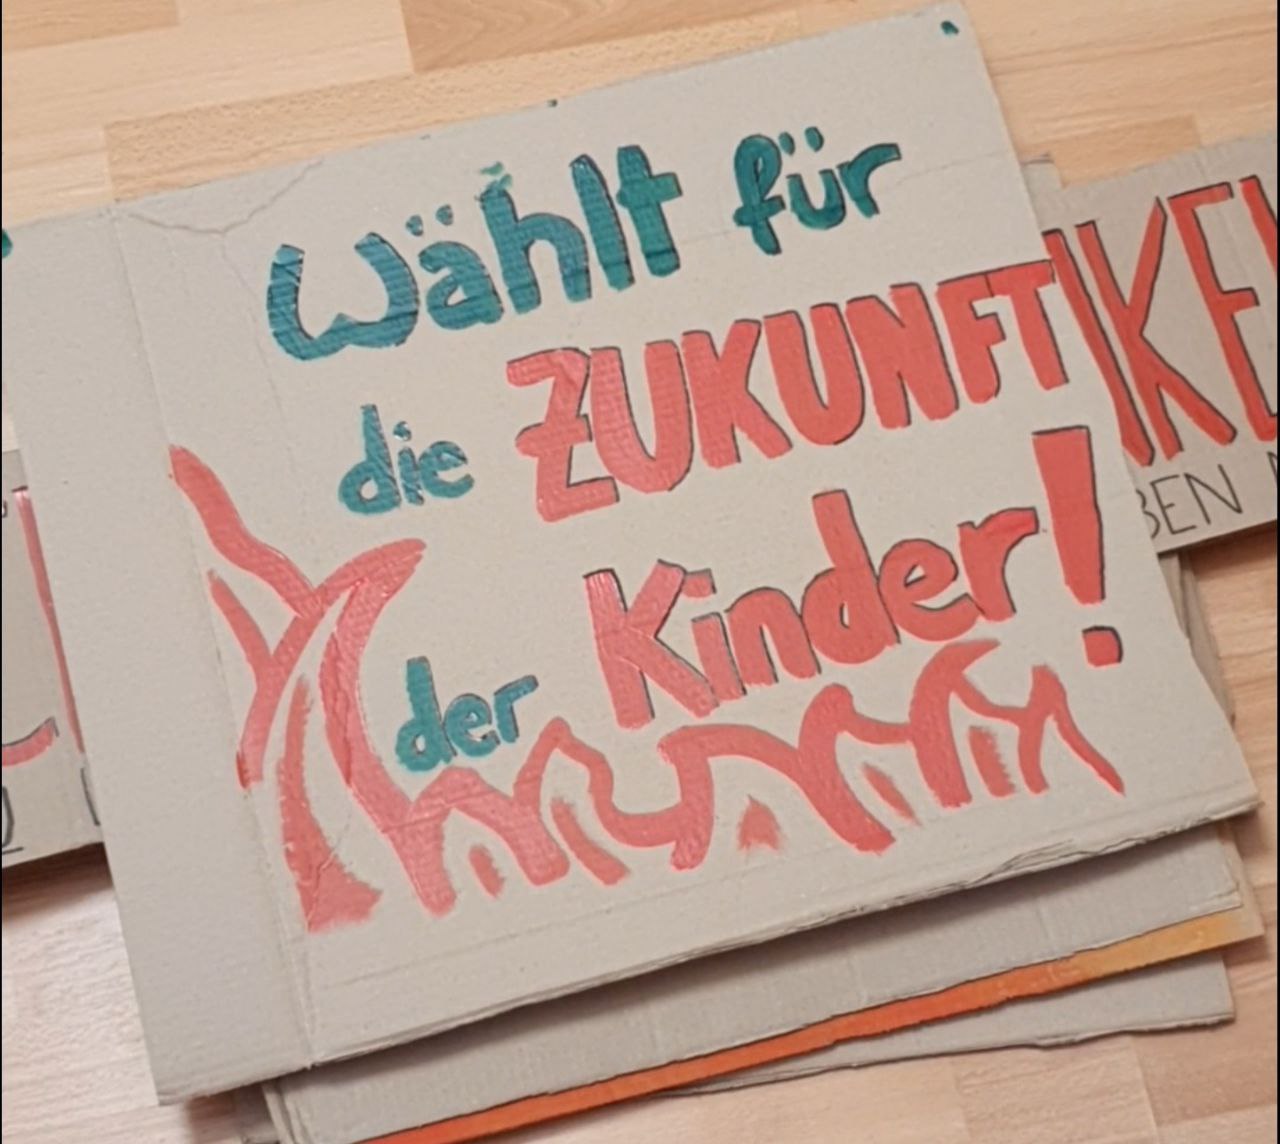 Wählt für
die ZUKUNFT
der Kinder!